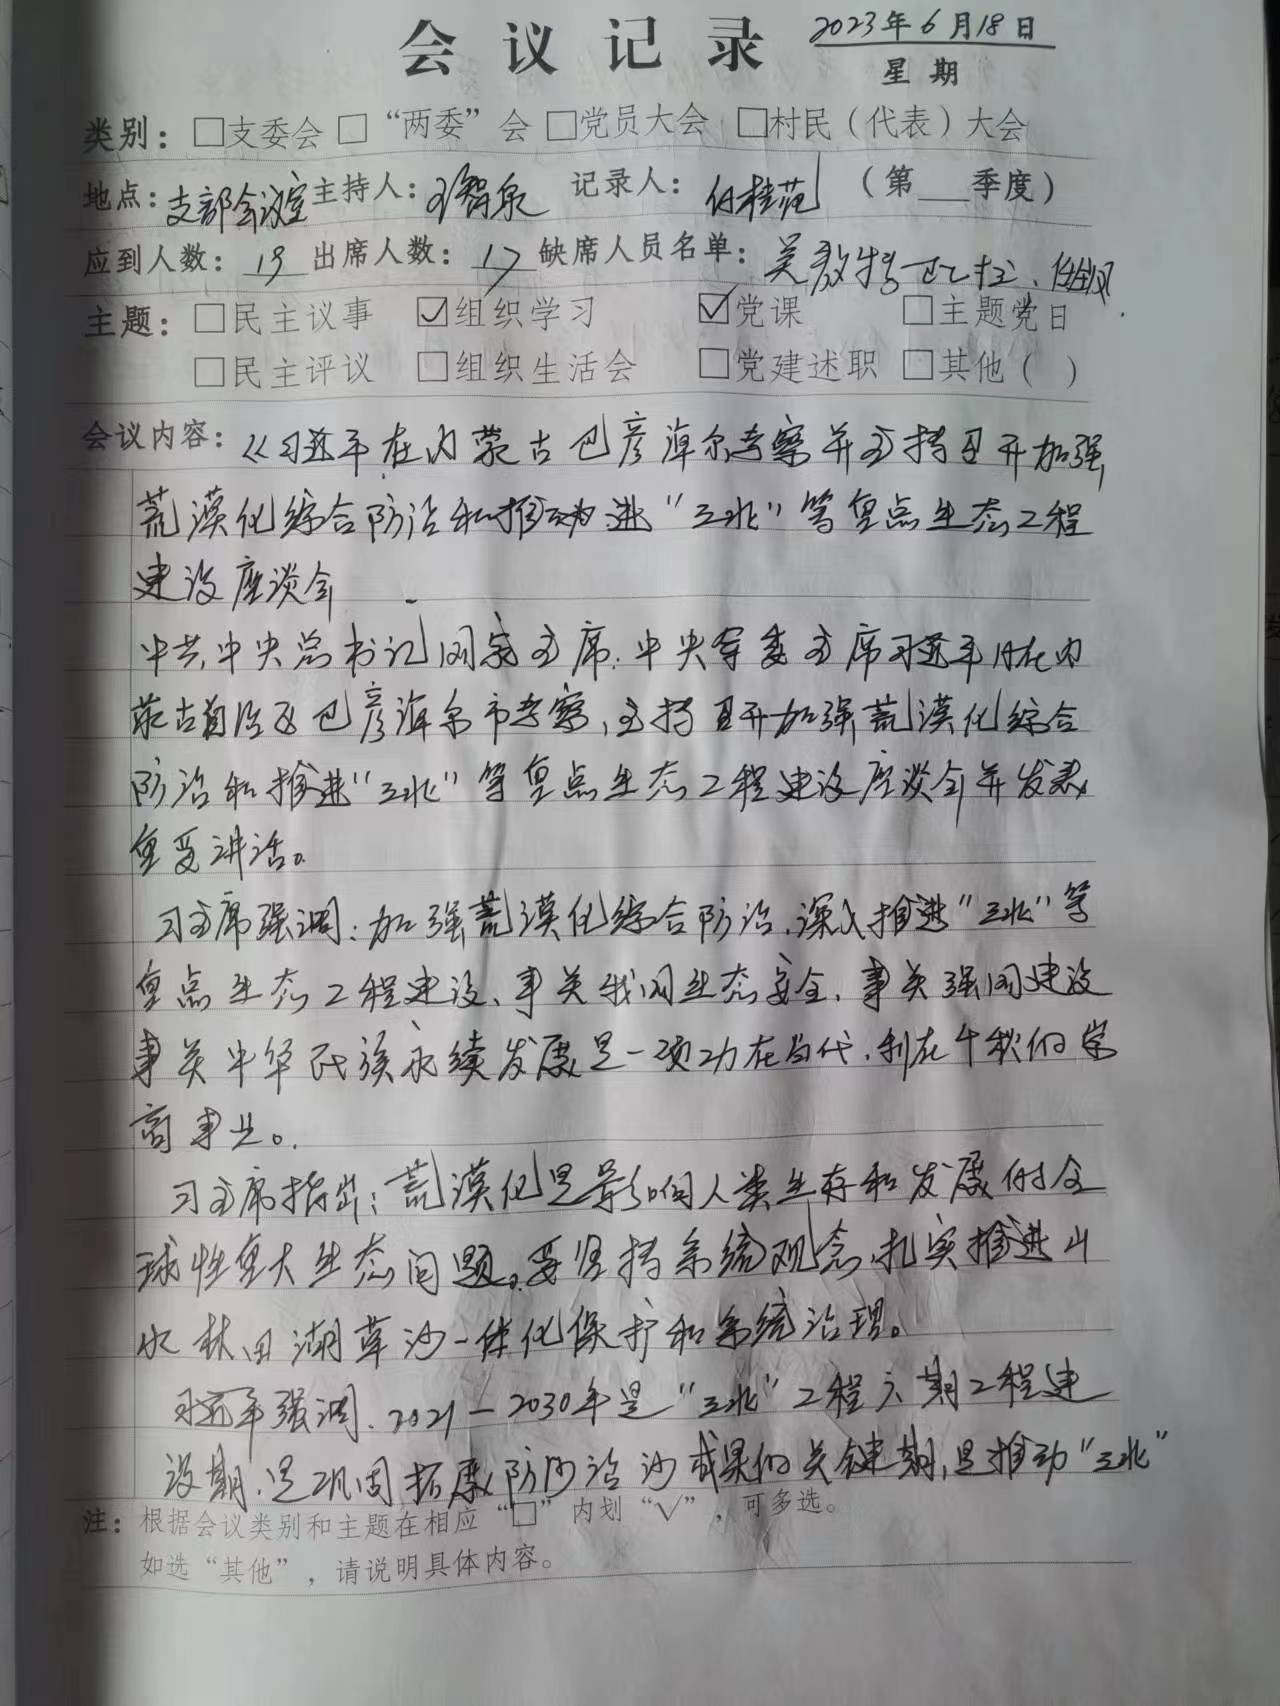 会议记录 2023年6月18日
星期
类别：□支委会 □“两委”会 □党员大会 □村民（代表）大会
地点：支部会议室 主持人： 记录人：付桂苑 （第___季度）
应到人数：19 出席人数：17 缺席人员名单：吴
主题：□民主议事 ☑组织学习 ☑党课 □主题党日
□民主评议 □组织生活会 □党建述职 □其他（ ）
会议内容：《习近平在内蒙古巴彦淖尔考察并主持召开加强
荒漠化综合防治和推进“三北”等重点生态工程
建设座谈会
中共中央总书记国家主席、中央军委主席习近平日在内
蒙古自治区巴彦淖尔市考察，主持召开加强荒漠化综合
防治和推进“三北”等重点生态工程建设座谈会并发表
重要讲话。
习主席强调：加强荒漠化综合防治，深入推进“三北”等
重点生态工程建设、事关我国生态安全、事关强国建设
事关中华民族永续发展是一项功在当代、利在千秋的崇
高事业。
习主席指出：荒漠化是影响人类生存和发展的全
球性重大生态问题。要坚持系统观念，扎实推进山
水林田湖草沙一体化保护和系统治理。
习近平强调、2021—2030年是“三北”工程六期工程建
设期，是巩固拓展防沙治沙成果的关键期，是推动“三北”
注：根据会议类别和主题在相应“□”内划“√”，可多选。
如选“其他”，请说明具体内容。